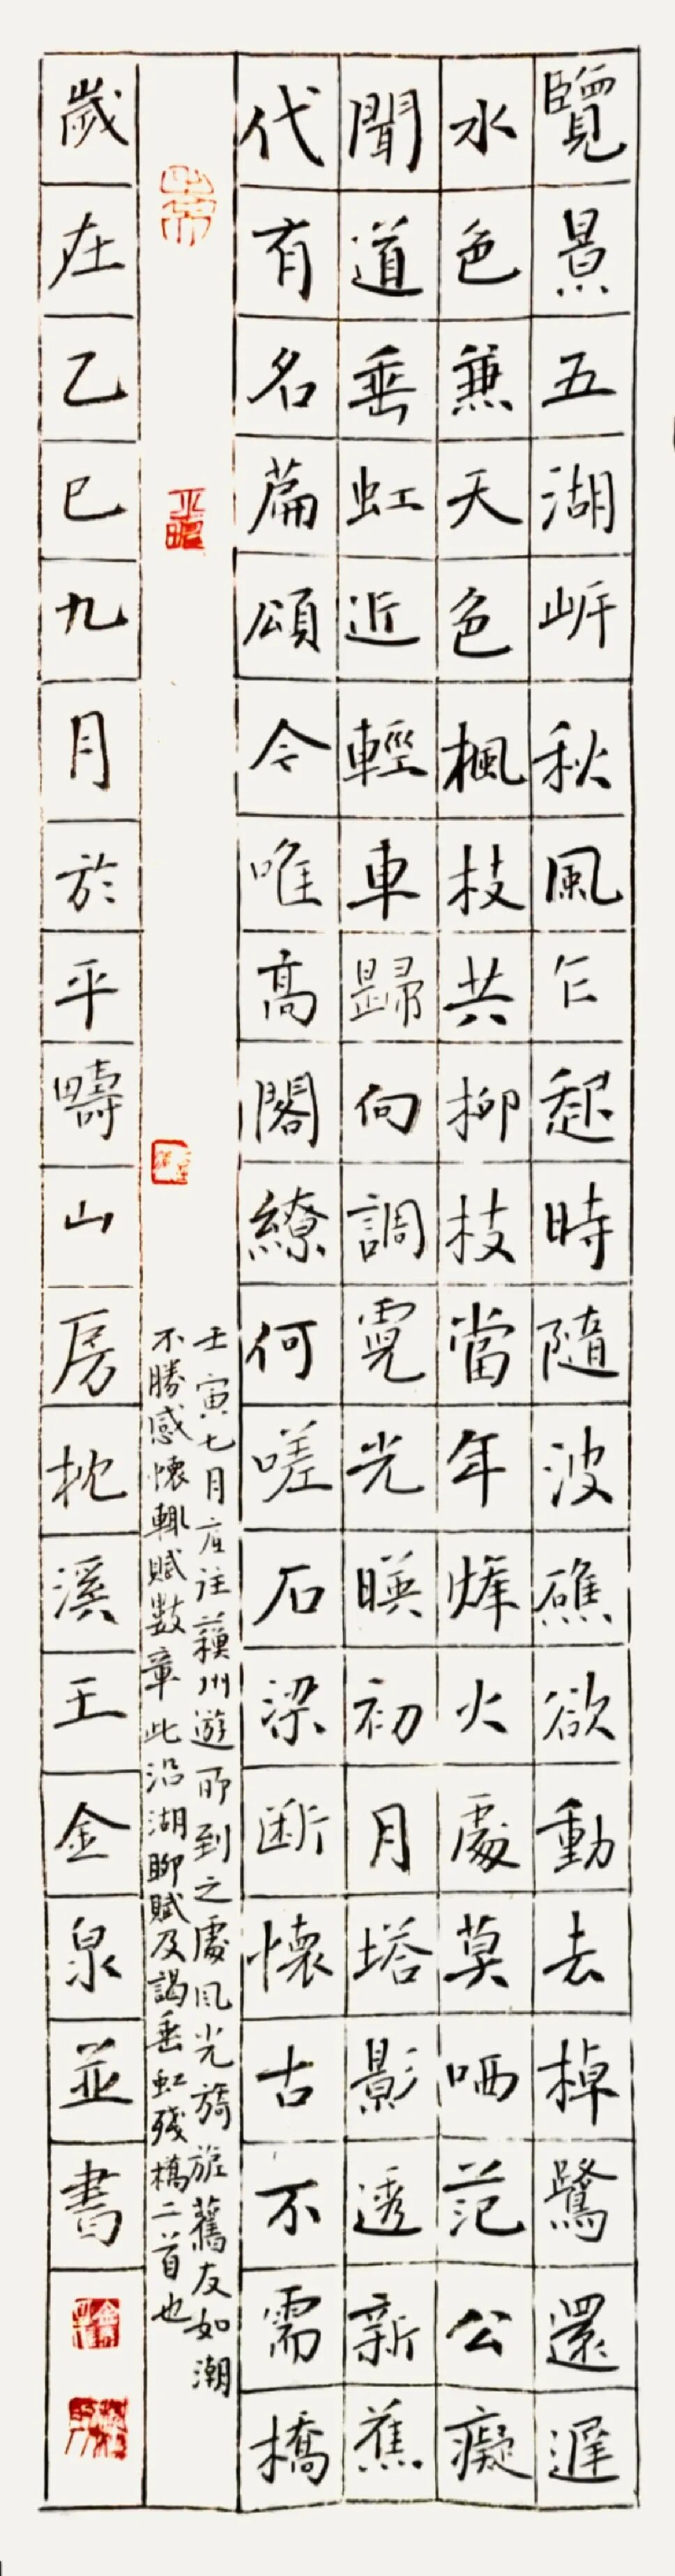 覽景五湖岸秋風乍起時隨波礁欲動去棹鷺還遲
水色兼天色楓枝共柳枝當年烽火處莫哂范公癡
聞道垂虹近輕車歸向調霓光暎初月塔影透新蕉
代有名篇頌今唯高閣繚何嗟石梁斷懷古不需橋
壬寅七月應往蘇州遊所到之處風光旖旎舊友如潮
不勝感懷輒賦數章此沿湖聊賦及謁垂虹殘橋二首也
歲在乙巳九月於平疇山房枕溪王金泉並書